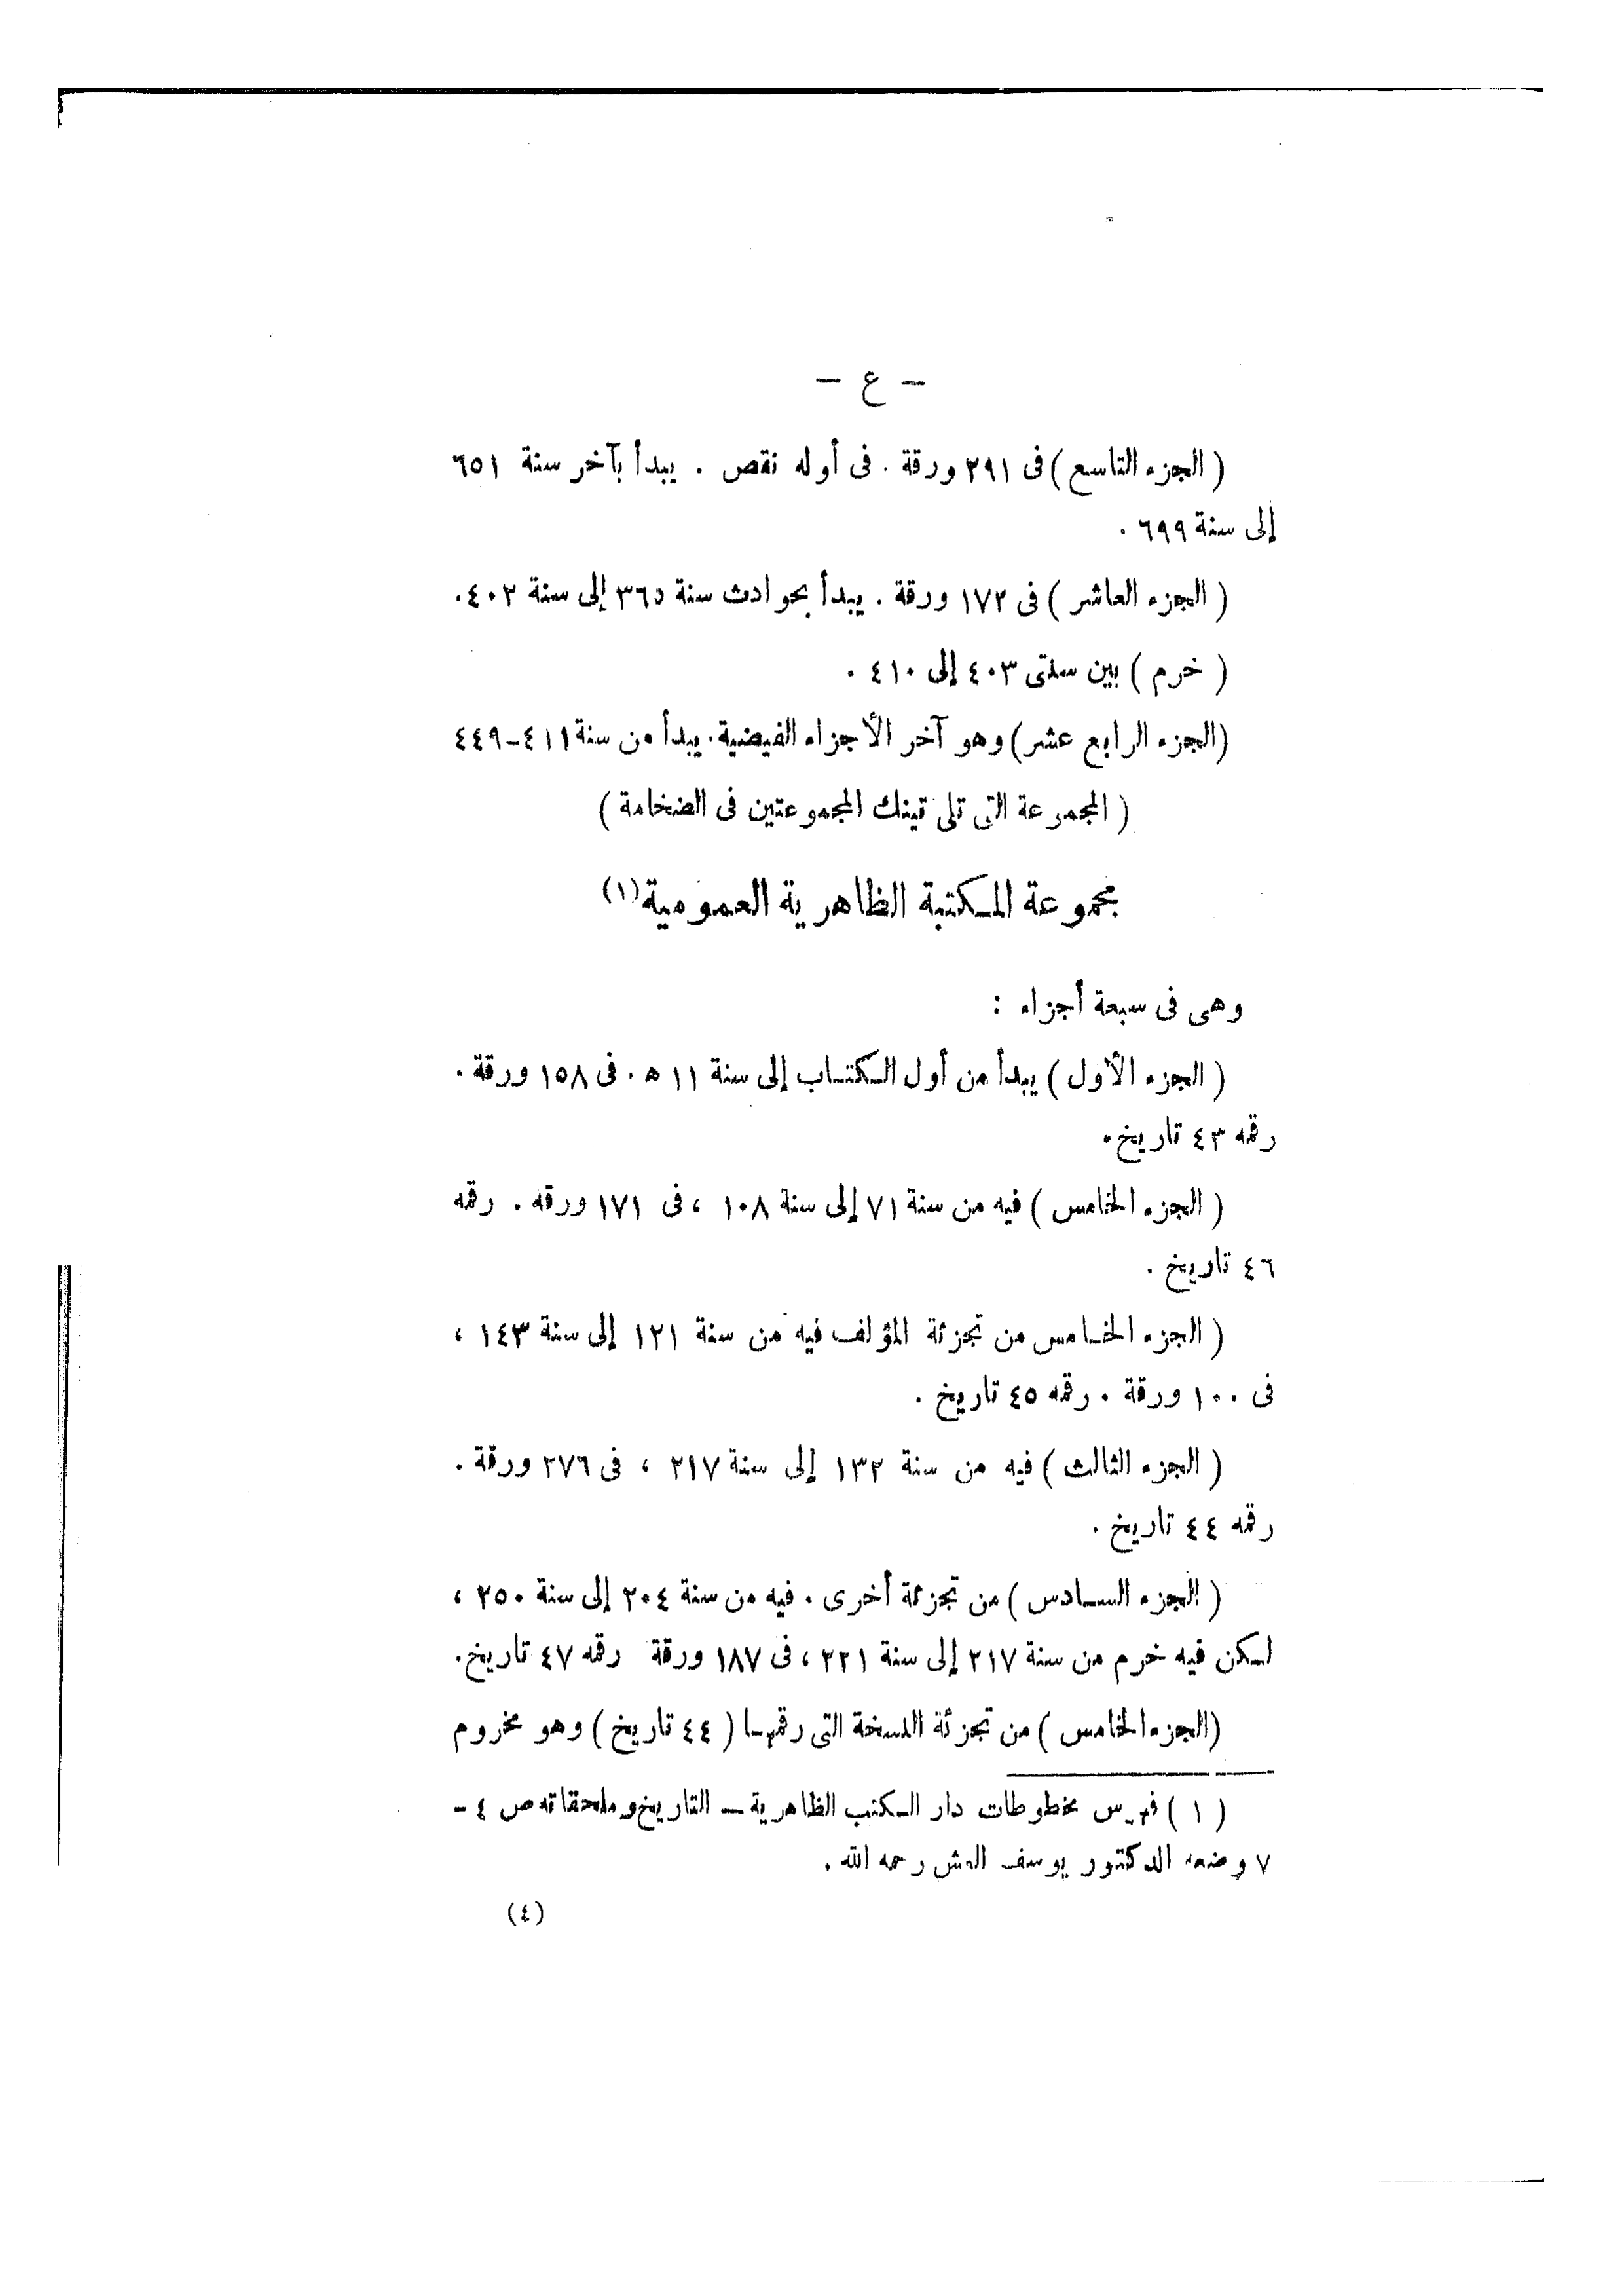 — ع —
( الجزء التاسع ) فى ٢٩١ ورقة . فى أوله نقص . يبدأ بآخر سنة ٦٥١
إلى سنة ٦٩٩ .
( الجزء العاشر ) فى ١٧٢ ورقة . يبدأ بحوادث سنة ٣٦٥ إلى سنة ٤٠٢.
( خرم ) بين سنتى ٤٠٣ إلى ٤١٠ .
(الجزء الرابع عشر) وهو آخر الأجزاء الفيضية. يبدأ من سنة ٤١١-٤٤٩
( المجموعة التى تلى تينك المجموعتين فى الضخامة )
مجموعة المكتبة الظاهرية العمومية(١)
وهى فى سبعة أجزاء :
( الجزء الأول ) يبدأ من أول الكتاب إلى سنة ١١ هـ . فى ١٥٨ ورقة .
رقمه ٤٣ تاريخ.
( الجزء الخامس ) فيه من سنة ٧١ إلى سنة ١٠٨ ، فى ١٧١ ورقه . رقمه
٤٦ تاريخ .
( الجزء الخامس من تجزئة المؤلف فيه من سنة ١٢١ إلى سنة ١٤٣ ،
فى ١٠٠ ورقة . رقمه ٤٥ تاريخ .
( الجزء الثالث ) فيه من سنة ١٣٢ إلى سنة ٢١٧ ، فى ٢٧٦ ورقة .
رقمه ٤٤ تاريخ .
( الجزء السادس ) من تجزئة أخرى . فيه من سنة ٢٠٤ إلى سنة ٢٥٠ ،
لكن فيه خرم من سنة ٢١٧ إلى سنة ٢٢١ ، فى ١٨٧ ورقة رقمه ٤٧ تاريخ.
(الجزء الخامس ) من تجزئة النسخة التى رقمها ( ٤٤ تاريخ ) وهو مخروم
( ١ ) فهرس مخطوطات دار الكتب الظاهرية — التاريخ وملحقاته ص ٤ -
٧ وضعه الدكتور يوسف العش رحمه الله .
(٤)